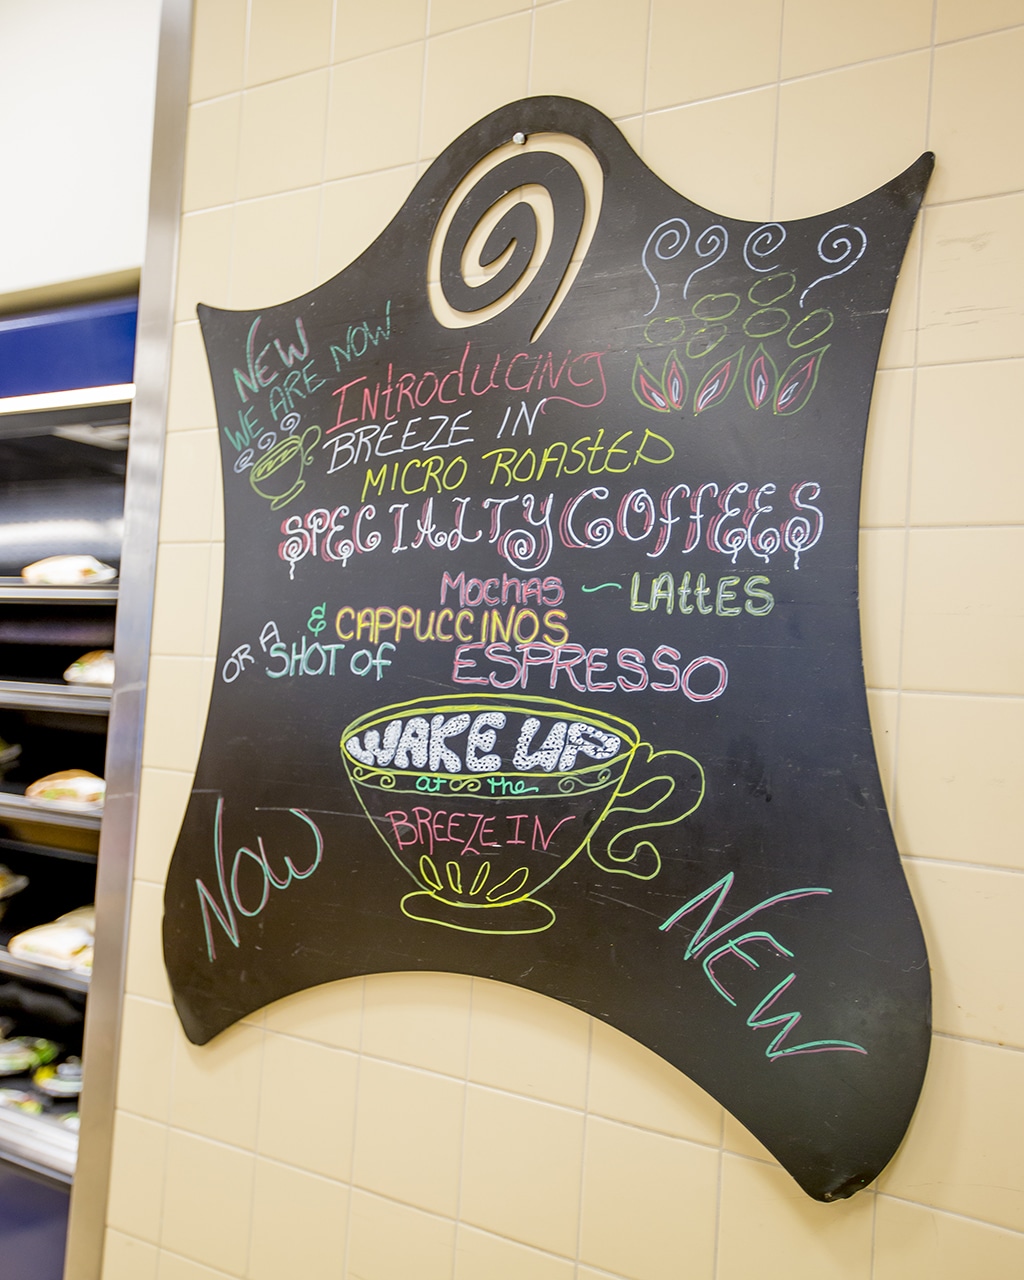 NEW
WE ARE NOW
INtRODUCING
BREEZE IN
MICRO ROASTED
SPECIALTY COFFEES
MOCHAS ~ LAttES
& CAPPUCCINOS
OR A SHOT OF ESPRESSO
WAKE UP
at the
BREEZE IN
NOW
NEW